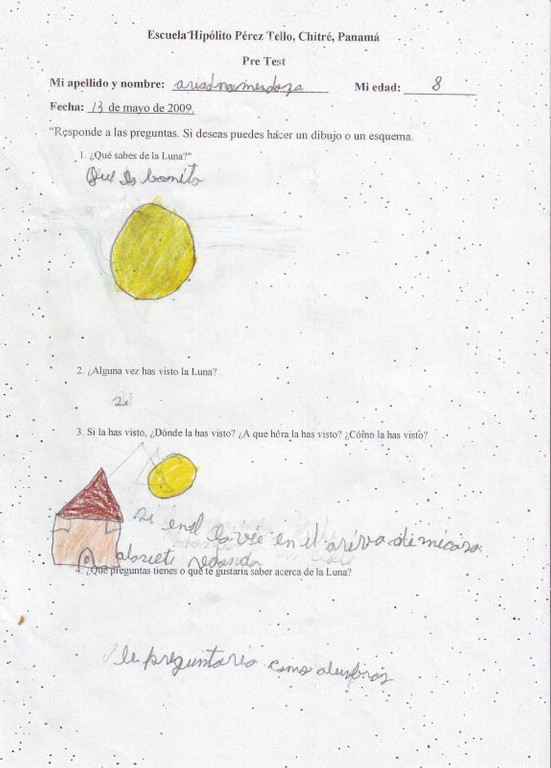 Escuela Hipólito Pérez Tello, Chitré, Panamá
Pre Test
Mi apellido y nombre: ariadna mendoza Mi edad: 8
Fecha: 13 de mayo de 2009.
"Responde a las preguntas. Si deseas puedes hacer un dibujo o un esquema.
1. ¿Qué sabes de la Luna?"
Que es bonito
2. ¿Alguna vez has visto la Luna?
si
3. Si la has visto, ¿Dónde la has visto? ¿A que hora la has visto? ¿Cómo la has visto?
si en el la vie en el ariva de mi casa
redonda
4. ¿Qué preguntas tienes o qué te gustaría saber acerca de la Luna?
le preguntaria como alumbras